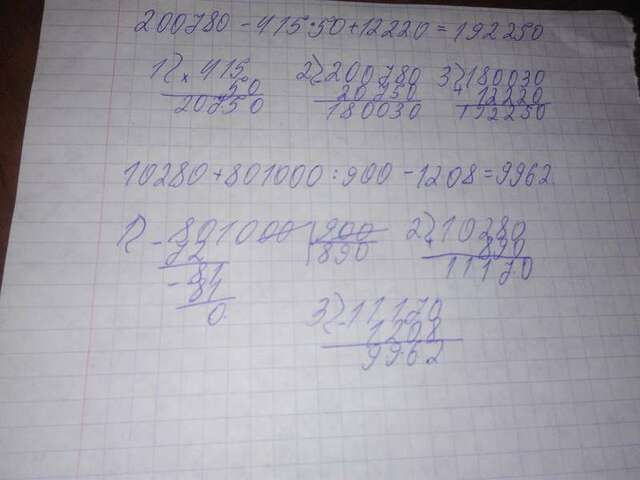 200780 - 415·50 + 12220 = 192250
1) × 415
50
20750
2) - 200780
20750
180030
3) + 180030
12220
192250
10280 + 801000 : 900 - 1208 = 9962
1) - 801000 | 900
72 | 890
- 81
81
0
2) + 10280
890
11170
3) - 11170
1208
9962